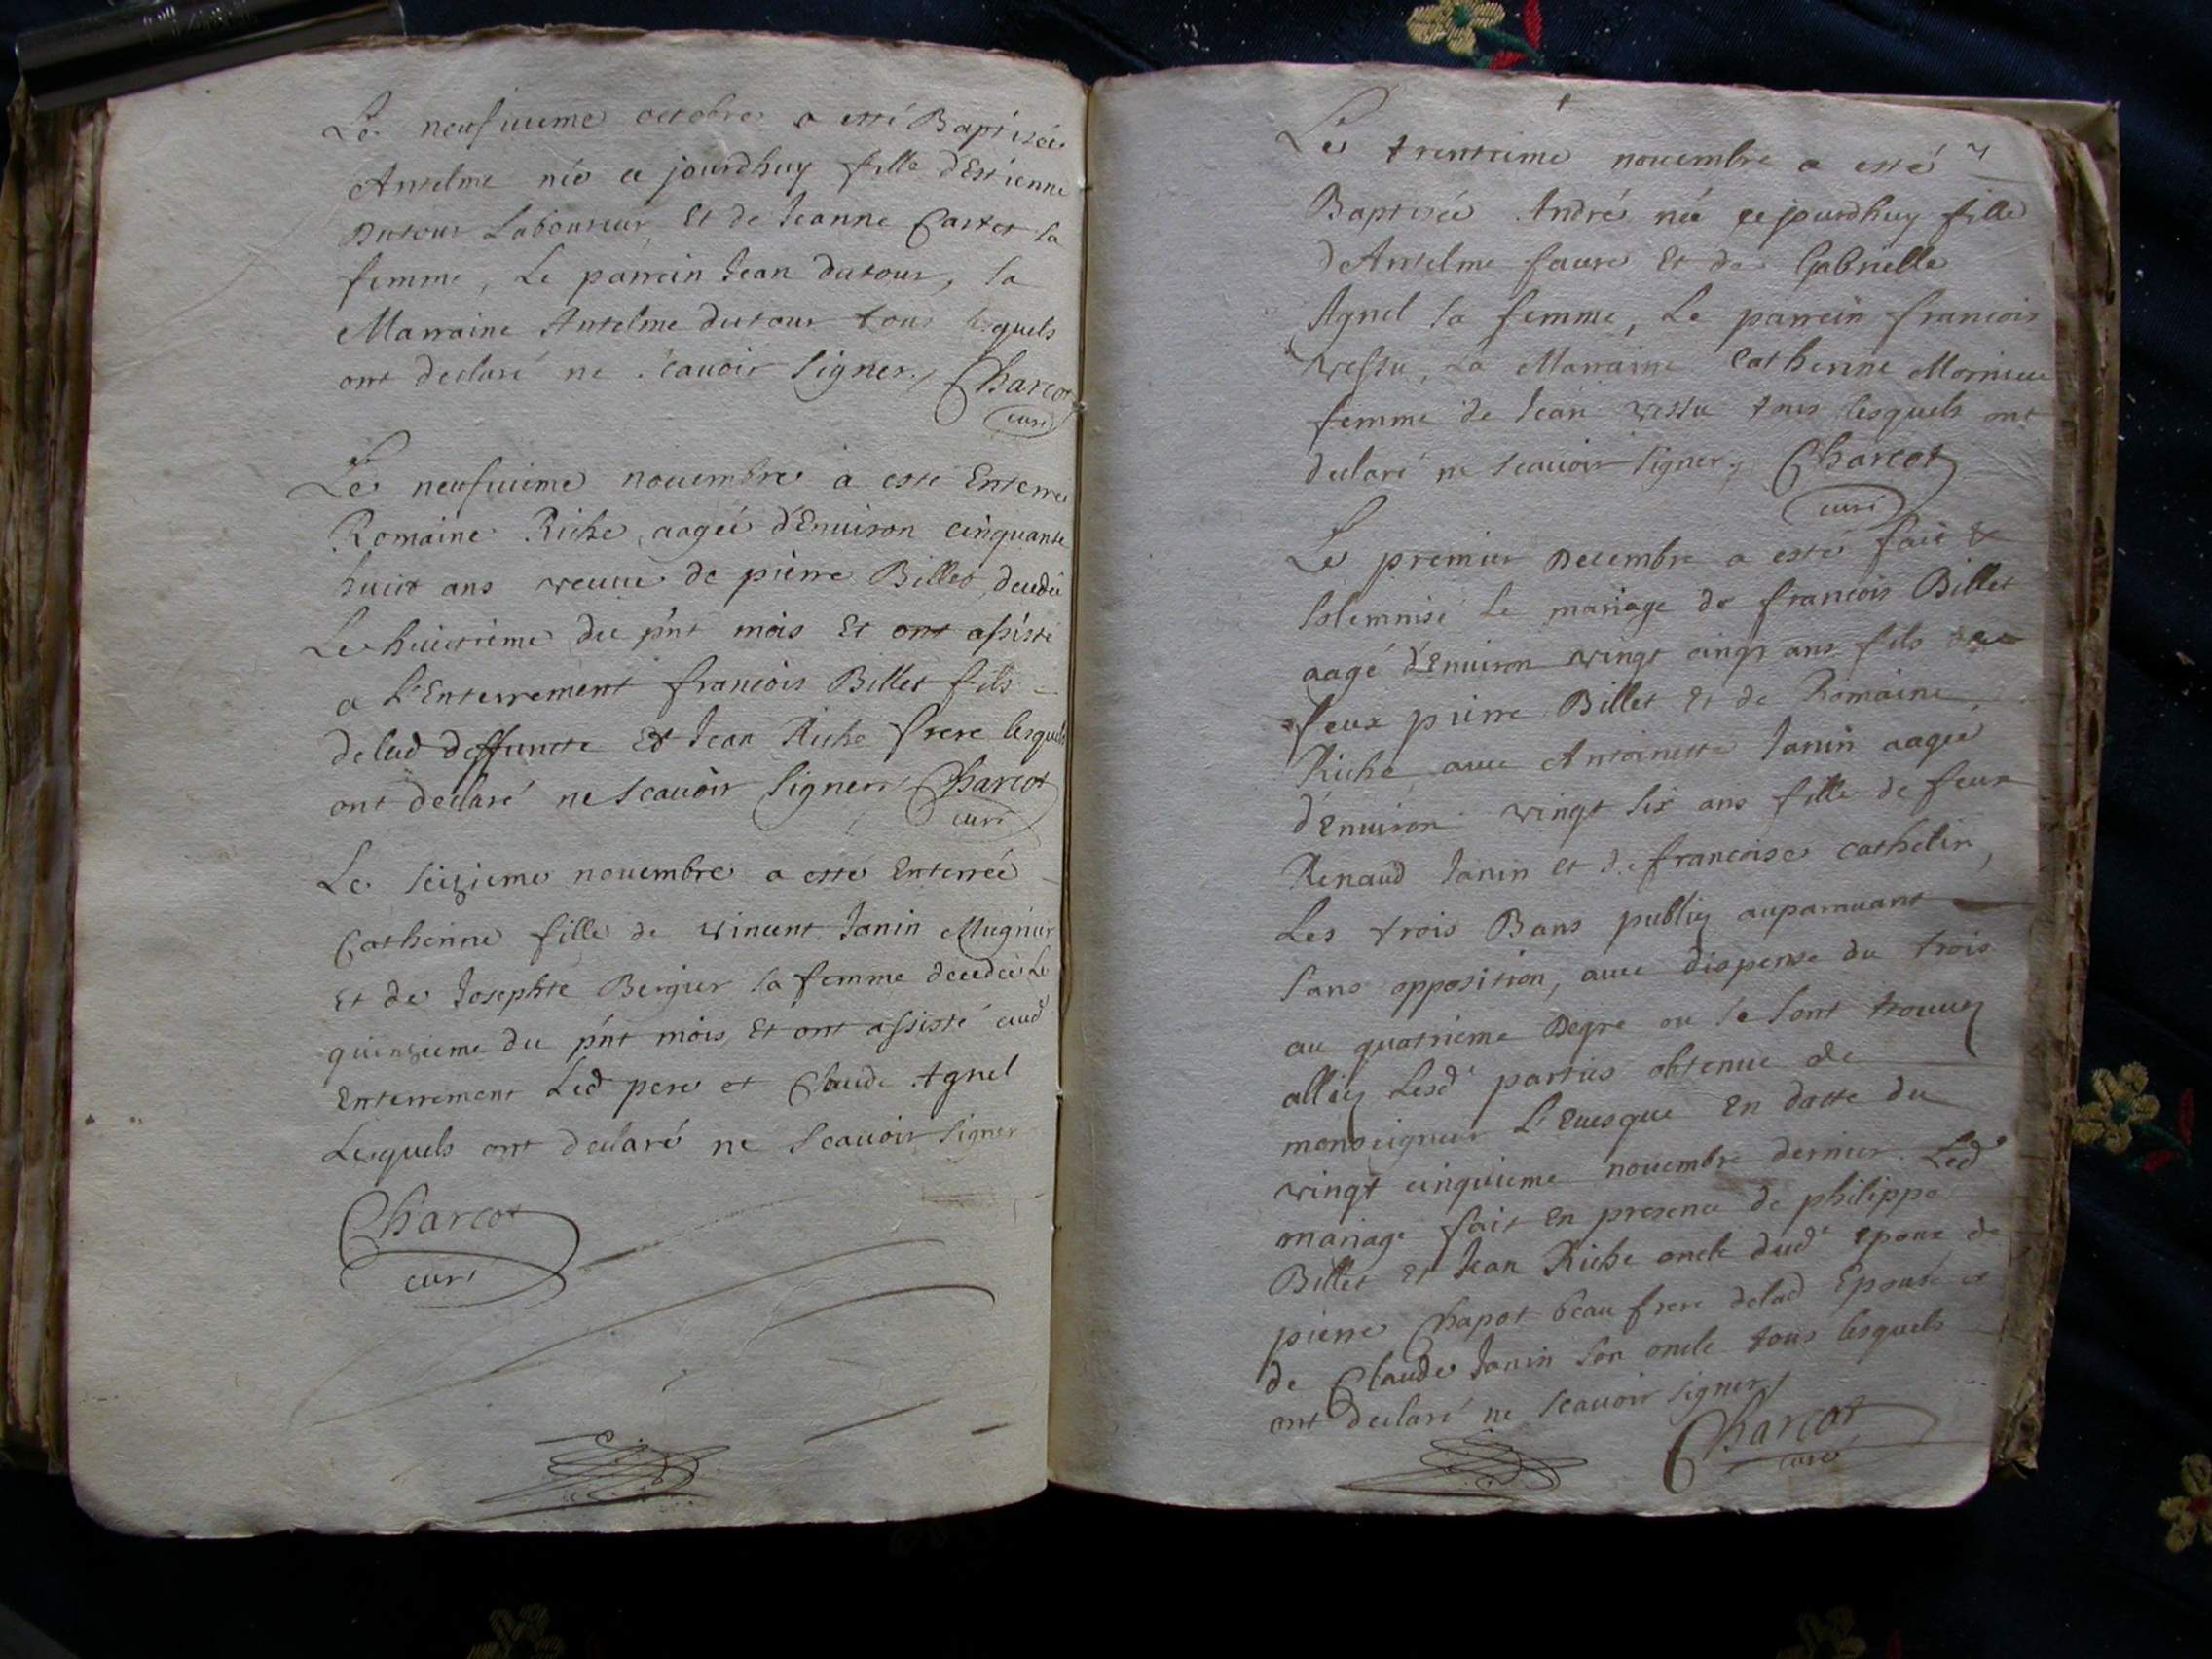 Le neufuieme octobre a esté Baptisée
Antelme née ce jourdhuy fille d'Estienne
Dutour Laboureur, Et de Jeanne Cartet sa
femme, Le parrein Jean dutour, la
Marraine Antelme dutour tous lesquels
ont declaré ne scauoir signer, Charcot
curé
Le neufuieme nouembre a esté Enterré
Romaine Riche, aagée d'Enuiron cinquante
huict ans veuue de pierre Billet, decedée
Le huictieme du pnt mois Et ont assisté
a L'Enterrement francois Billet fils
delad deffuncte Et Jean Riche frere lesquels
ont declaré ne scauoir signer, Charcot
curé
Le seizieme nouembre a esté Enterrée
Catherine fille de vincent Janin Mugnier
Et de Josephte Bergier sa femme decedée Le
quinzieme du pnt mois, Et ont assisté aud
Enterrement Led pere et Claude Agnel
Lesquels ont declaré ne scauoir signer
Charcot
curé
7
Le trentieme nouembre a esté
Baptisée André née ce jourdhuy fille
d'Antelme faure Et de Gabrielle
Agnel sa femme, Le parrein francois
vessu, La Marraine Catherine
femme de Jean vessu tous lesquels ont
declaré ne scauoir signer, Charcot
curé
Le premier Decembre a esté fait &
solemnisé le mariage de francois Billet
aagé d'Enuiron vingt cinq ans fils de
feux pierre Billet Et de Romaine
Riche auec Antoinette Janin aagée
d'Enuiron vingt six ans fille de feux
Renaud Janin et de francoise cathelin,
Les trois Bans publiez auparauant
sans opposition, auec dispense du trois
au quatrieme Degre ou se sont trouuez
alliez Lesd parties obtenue de
monseigneur L'Euesque En datte du
vingt cinquieme nouembre dernier. Led
mariage fait En presence de philippe
Billet Et Jean Riche oncle dud epoux de
pierre Chapot beau frere delad Epouse et
de Claude Janin son oncle tous lesquels
ont declaré ne scauoir signer,
Charcot
curé